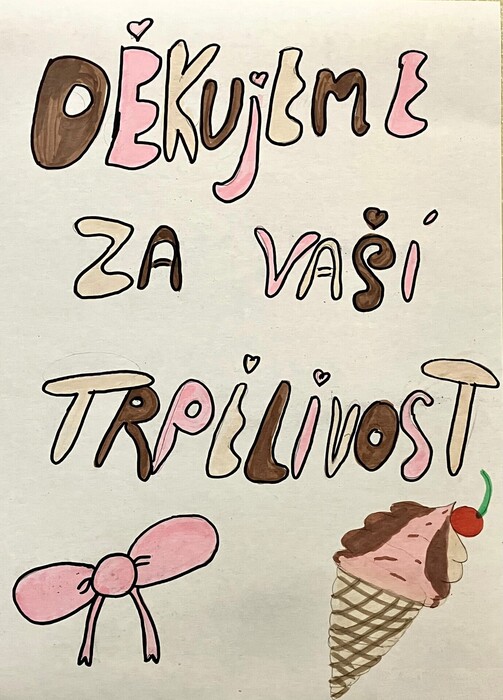 DĚKUJEME
ZA VAŠÍ
TRPĚLIVOST